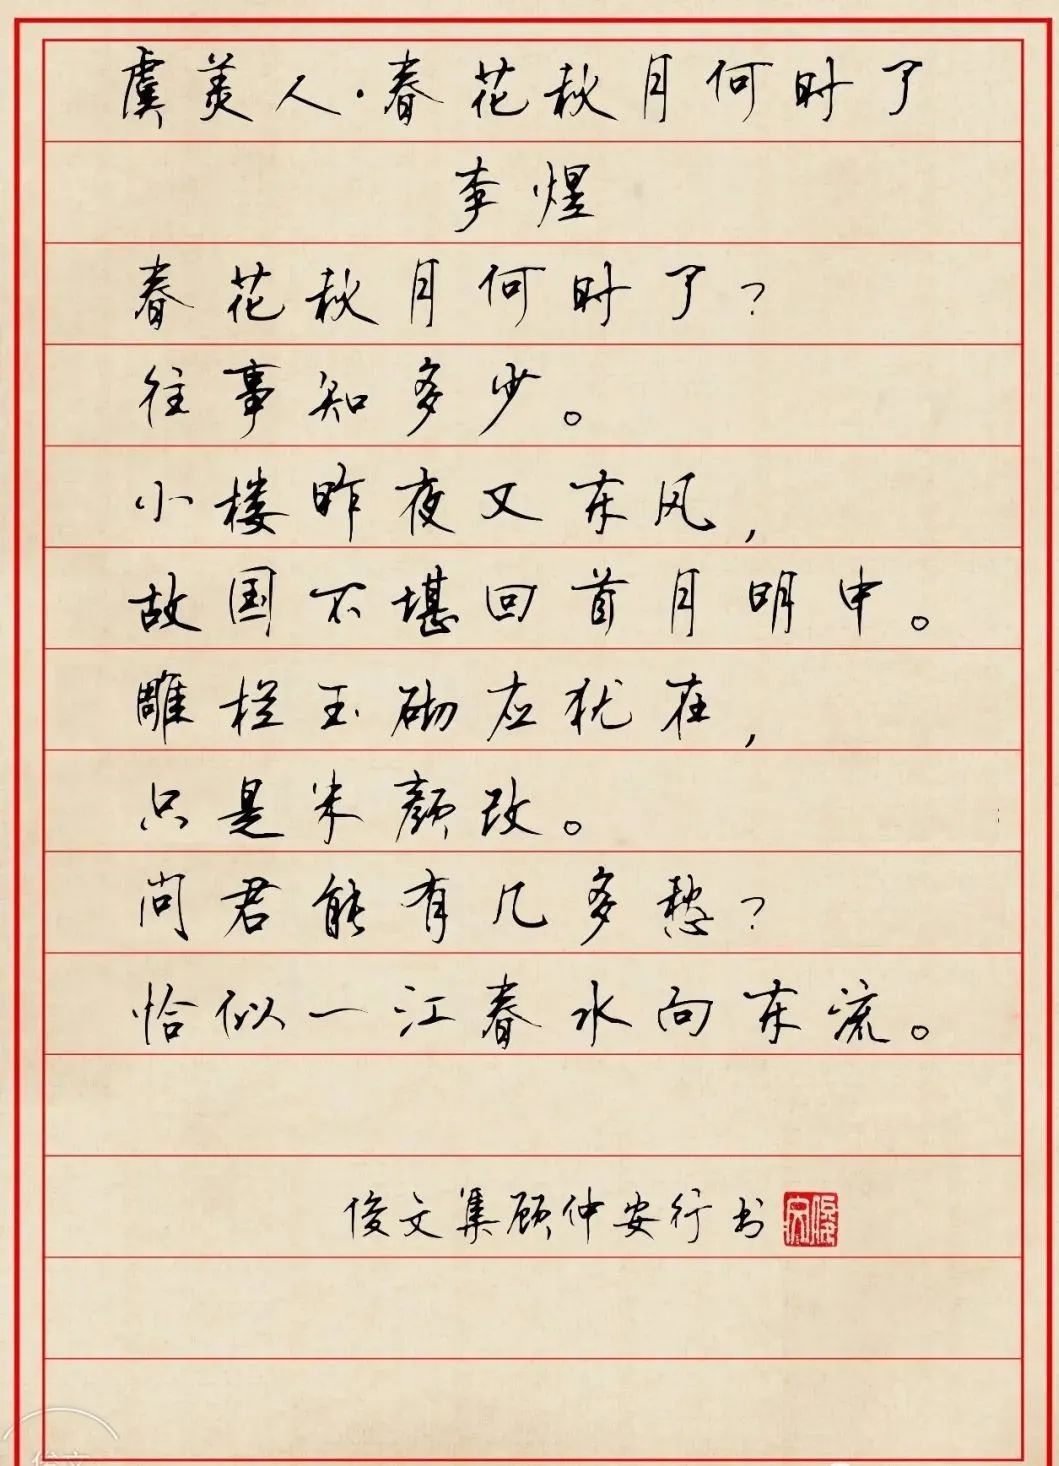 虞美人·春花秋月何时了
李煜
春花秋月何时了?
往事知多少。
小楼昨夜又东风,
故国不堪回首月明中。
雕栏玉砌应犹在,
只是朱颜改。
问君能有几多愁?
恰似一江春水向东流。
俊文集顾仲安行书
俊文